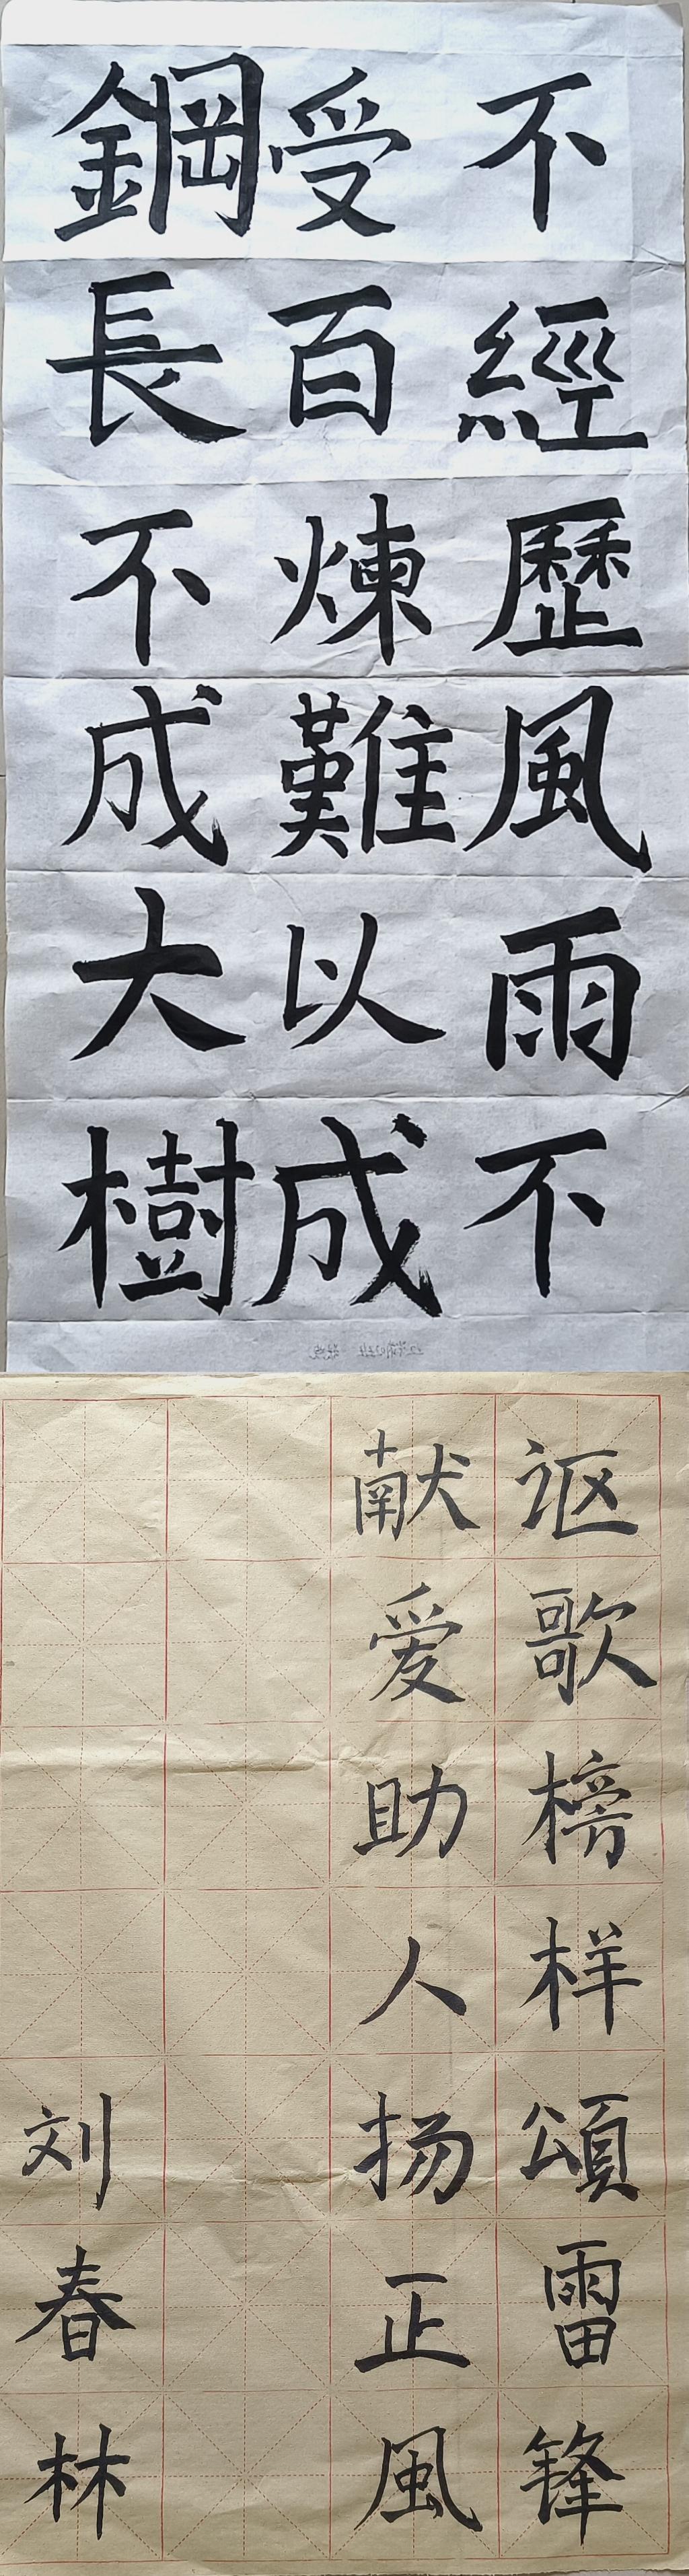 不經歷風雨不
受百煉難以成
鋼長不成大樹
讴歌榜样頌雷锋
献爱助人扬正風
刘春林